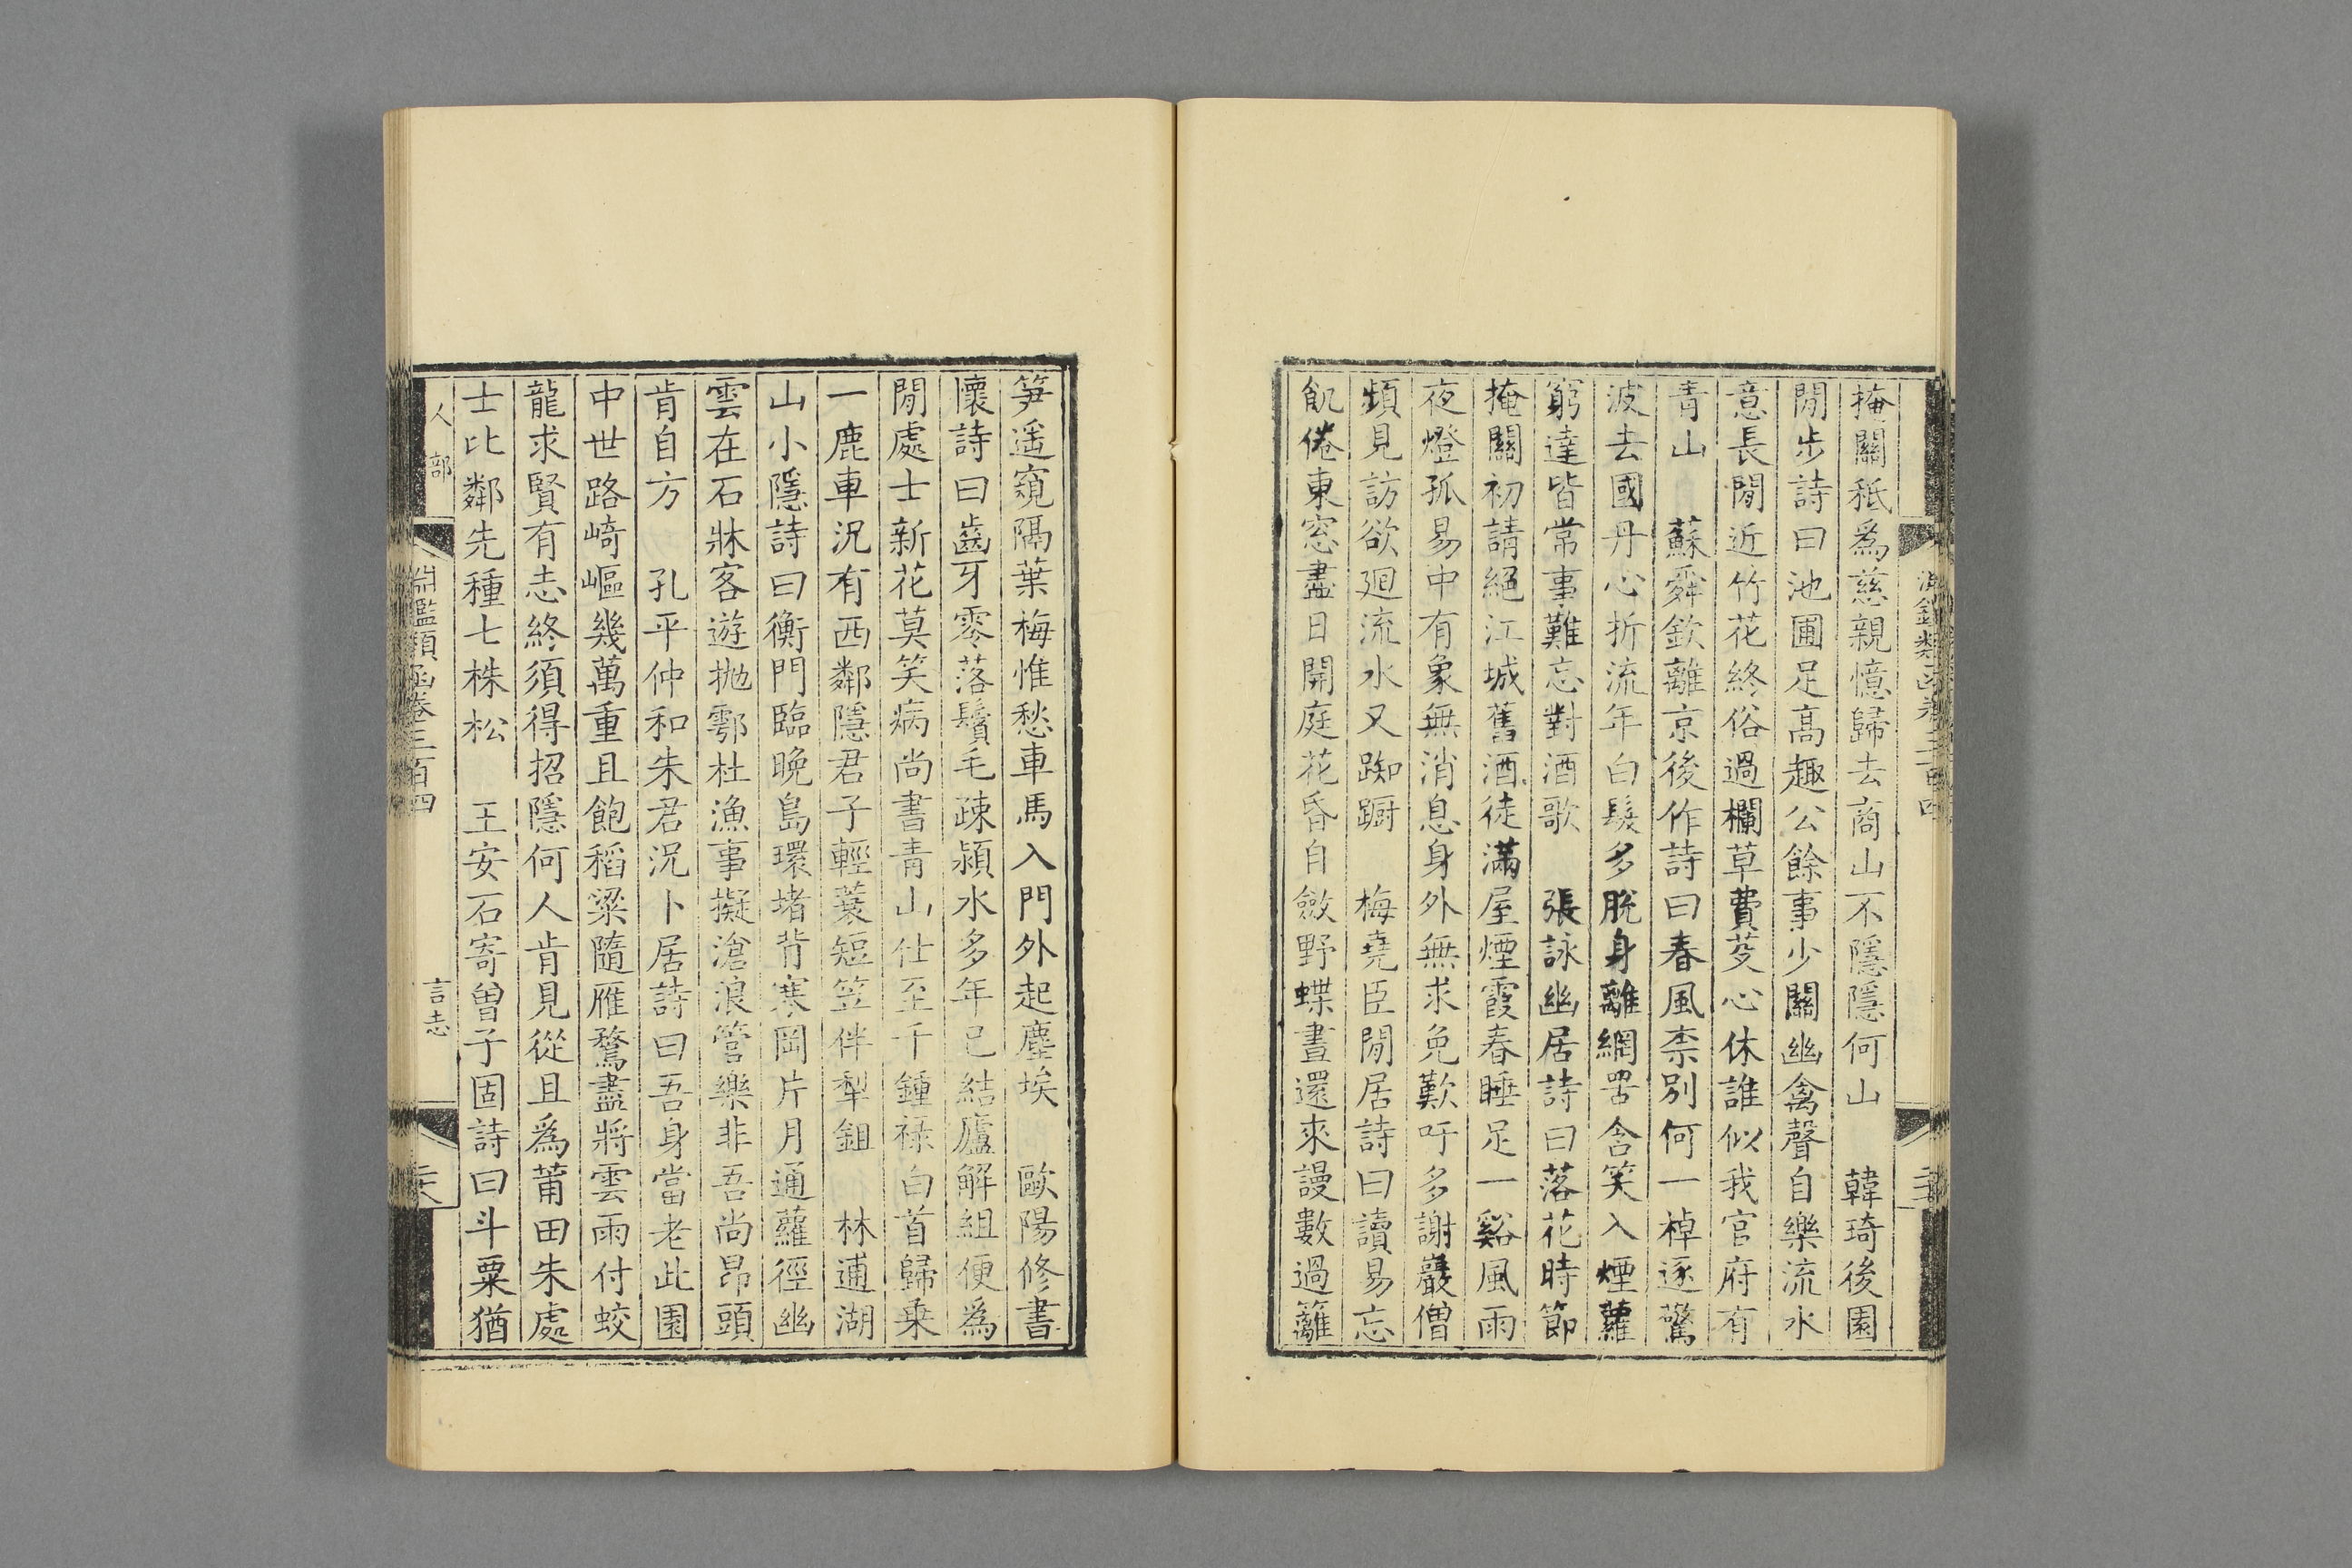 掩關秪爲慈親憶歸去商山不隱隱何山　韓琦後園
閒步詩曰池圃足高趣公餘事少關幽禽聲自樂流水
意長閒近竹花終俗過欄草費芟心休誰似我官府有
青山　蘇舜欽離京後作詩曰春風柰別何一棹逐驚
波去國丹心折流年白髮多脫身離網罟含笑入煙蘿
窮達皆常事難忘對酒歌　張詠幽居詩曰落花時節
掩關初請絕江城舊酒徒滿屋煙霞春睡足一谿風雨
夜燈孤易中有象無消息身外無求免歎吁多謝巖僧
頻見訪欲廻流水又踟躕　梅堯臣閒居詩曰讀易忘
飢倦東窓盡日開庭花昏自斂野蝶晝還來謾數過籬
笋遥窺隔葉梅惟愁車馬入門外起塵埃　歐陽修書
懷詩曰齒牙零落鬢毛疎潁水多年已結廬解組便爲
閒處士新花莫笑病尚書青山仕至千鍾祿白首歸乗
一鹿車況有西鄰隱君子輕蓑短笠伴犁鉏　林逋湖
山小隱詩曰衡門臨晚島環堵背寒岡片月通蘿徑幽
雲在石牀客遊拋鄠杜漁事擬滄浪管樂非吾尚昂頭
肯自方　孔平仲和朱君況卜居詩曰吾身當老此園
中世路崎嶇幾萬重且飽稻粱隨雁鶩盡將雲雨付蛟
龍求賢有志終須得招隱何人肯見從且爲莆田朱處
士比鄰先種七株松　王安石寄曾子固詩曰斗粟猶
人部　淵鑑類函卷三百四　言志